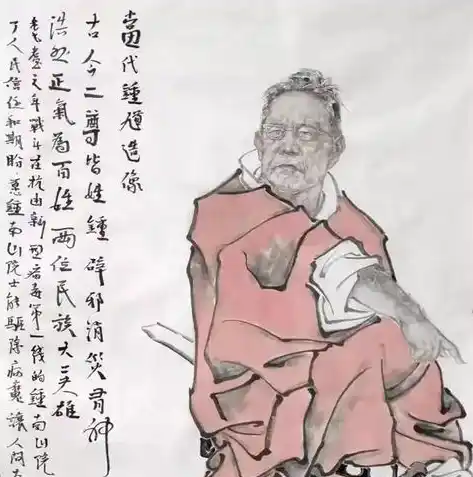 當代鍾馗造像
古今二尊皆姓鍾 辟邪消災有神
浩然正氣為百姓 兩位民族大英雄
耄耋之年戰斗在抗击新型病毒第一线的鍾南山院
了人民信任和期盼,愿鍾南山院士能驱除病魔 讓人间